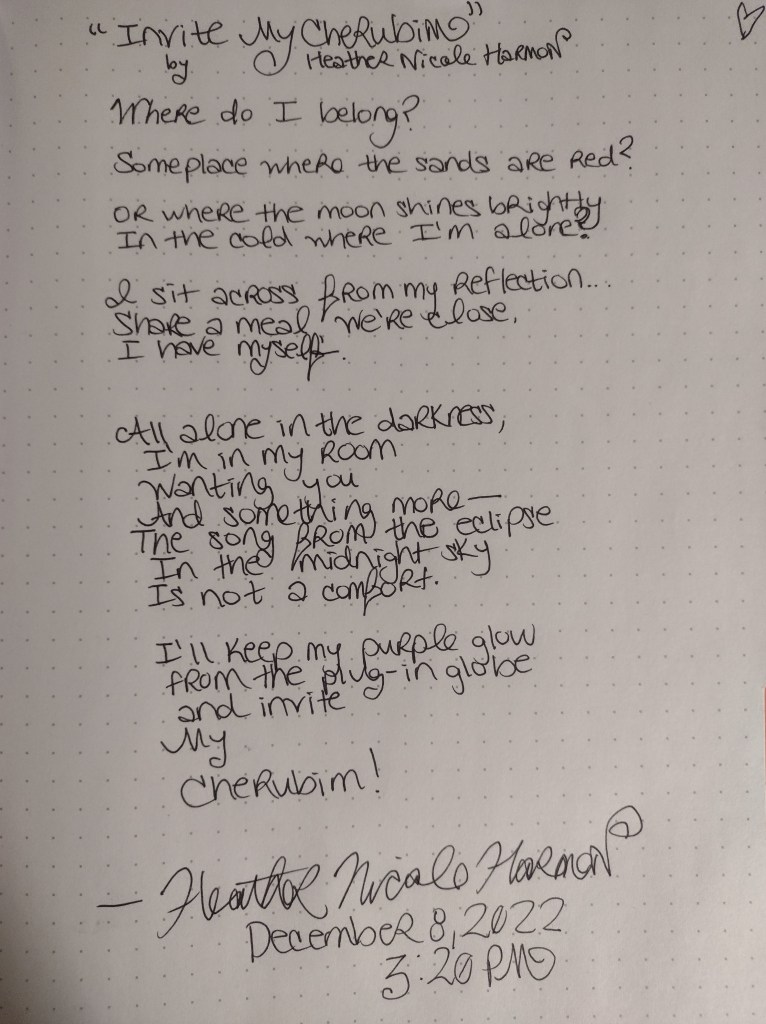 "Invite My Cherubim"
by Heather Nicole Harmon
Where do I belong?
Someplace where the sands are red?
Or where the moon shines brightly
In the cold where I'm alone?
I sit across from my reflection...
Share a meal, we're close,
I have myself.
All alone in the darkness,
I'm in my room
Wanting you
And something more—
The song from the eclipse
In the midnight sky
Is not a comfort.
I'll keep my purple glow
from the plug-in globe
and invite
My
Cherubim!
— Heather Nicole Harmon
December 8, 2022
3:20 PM